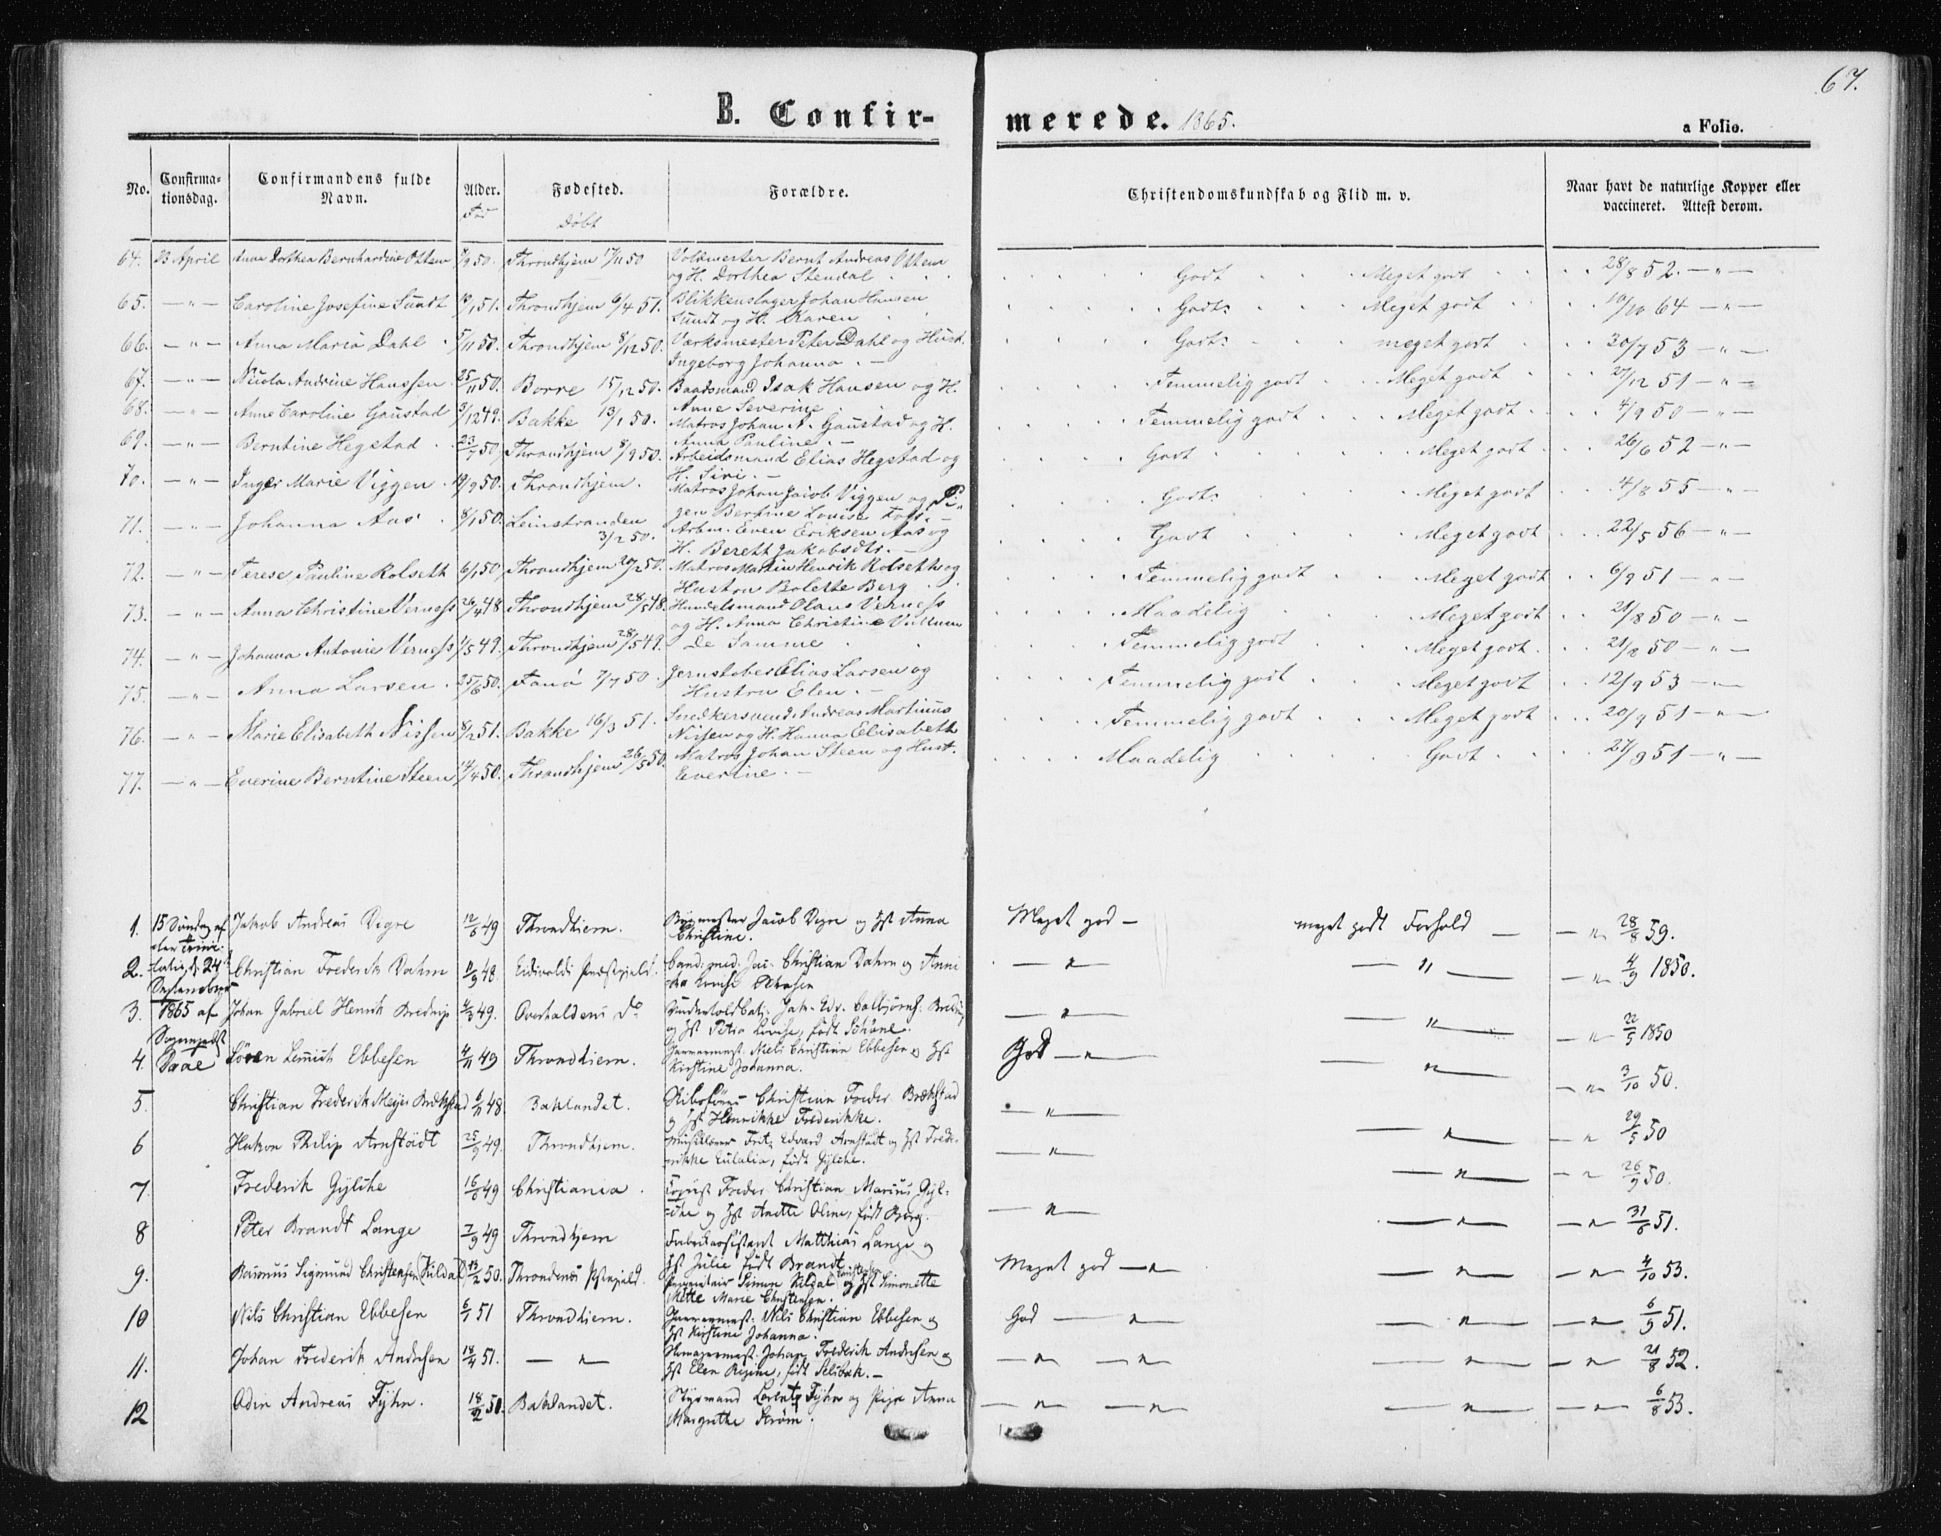 67.
B. Confirmerede. 1865.
a Folio.
No. Confirmationsdag. Confirmandens fulde Navn. Alder. Fødested. Forældre. Christendomskundskab og Flid m. v. Naar havt de naturlige Kopper eller vaccineret. Attest derom.
Døbt
64. 23 April Anna Dorthea Bernhardine Ottem 50. Throndhjem 17/11 50 Bernt Andreas Ottem Godt Meget godt 28/8 52. — " —
og H. Dorthea Stendal
65. — " — Caroline Josefine Sundt 51. Throndhjem 6/4 51. Blikkenslager Johan Hansen Godt. Meget godt 10/10 64 — " —
Sundt og H. Karen
66. — " — Anna Maria Dahl 5/11 50. Throndhjem 8/12 50. Værksmester Peter Dahl og Hust. Godt. meget godt 30/7 53 — " —
Ingeborg Johanna. —
67. — " — Nicola Andrine Hanssen 25/11 50. Borre 15/12 50. Baadsmand Isak Hansen og H. Temmelig godt Meget godt 27/12 51 — " —
Anne Severine
68. — " — Anne Caroline Gaustad 3/12 49. Bakke 13/1 50. Matros Johan N. Gaustad og H. Temmelig godt Meget godt 4/9 50 — " —
Anna Pauline. —
69. — " — Berntine Hegstad 23/7 50. Throndhjem 8/9 50. Arbeidsmand Elias Hegstad og Godt Meget godt 26/6 52 — " —
H. Siri. —
70. — " — Inger Marie Viggen 19/9 50. Throndhjem. Matros Johan Jacob Viggen og Pi- Godt. Meget godt 4/8 55 — " —
gen Bertine Lovise
71. — " — Johanna Aas 8/1 50. Leinstranden Arbm. Even Eriksen Aas og Godt Meget godt 22/5 56 — " —
3/2 50. H. Berett Jakobsdtr. —
72. — " — Terese Pauline Rolseth 6/1 50 Throndhjem 20/2 50. Matros Martin Henrik Rolseth og Temmelig godt Meget godt 6/9 51 — " —
Hustru Bolette Berg
73. — " — Anna Christine Verness 26/4 48 Throndhjem 28/5 48. Handelsmand Olaus Verness Maadelig Meget godt 21/8 50 — " —
og H. Anna Christine Vullum
74. — " — Johanna Antonie Verness 1/5 49. Throndhjem 28/5 49. De Samme Temmelig godt Meget godt 21/8 50 — " —
75. — " — Anna Larsen 25/6 50. Fanø 7/7 50 Jernstøber Elias Larsen og Temmelig godt Meget godt 12/9 53 — " —
Hustru Elen. —
76. — " — Marie Elisabeth Nissen 8/2 51. Bakke 16/3 51. Snedkersvend Andreas Martinus Temmelig godt Meget godt 20/9 51 — " —
Nissen og H. Hanna Elisabeth
77. — " — Everine Berntine Steen 14/4 50. Throndhjem 26/5 50. Matros Johan Steen og Hust. Maadelig Godt 27/9 51 — " —
Everine. —
1. 15 Søndag af Jakob Andreas Digre 12/6 49 Throndhiem. Bygmester Jacob Digre og Hst Anna Meget god — meget godt Forhold — — " — 28/8 59.
Christine.
2. 24 Christian Frederik Dahm 48. Eidsvolds Præstegjeld. Cand: med: Christian Dahm og — " — — " — — " — 4/9 1850.
Lovise
3. 1865 af Johan Gabriel Henrik Bredrup 49. Overhaldens Do — " — — " — — " — 22/5 1850
og Hst Petra Lovise, født
4. Søren Ebbesen 4/11 49 Throndhiem. Nils Christian Ebbesen og Hst God — " — — " — — " — 3/10 50.
Kirstine Johanna.
5. Christian Frederik Meyer Brækstad 6/11 48. Baklandet. Christian Freder: Brækstad — " — — " — — " — 29/5 50
og Hst Henrikke Frederikke.
6 Hakon Philip Arnstädt 25/9 49. Throndhiem. Fritz Edvard Arnstädt og Hst Frede- — " — — " — — " — 26/9 50.
rikke Eulalia, født Gylche.
7 Frederik Gylche 16/6 49 Christiania. Freder: Christian Marius Gyl- — " — — " — — " — 31/6 51.
che og Hst Anette Oline, født Borg.
8 Peter Brandt Lange 7/9 49 Throndhjem Matthias Lange og
Hst Julie født Brandt.
9. Rasmus Sigmund Christensen (Kildal) 50. Throndenæs Simon Kildal Christensen og Hst Simonette Meget god — " — — " — — " — 4/10 53.
Mette Marie Christensen.
10 Nils Christian Ebbesen 6/1 51 Throndhiem. Nils Christian Ebbesen og God — " — — " — — " — 6/9 51.
Hst Kirstine Johanna.
11. Johan Frederik Andresen 18/4 51. — " — Johan Frederik Andresen og — " — — " — — " — — " — 21/8 52.
Hst Elen Regine, født
12 Odin Andreas Fyhn. 18/2 50. Baklandet. Styrmand Lorentz Fyhn og Pige Anna — " — — " — — " — — " — 6/8 53.
Margrethe Strøm.